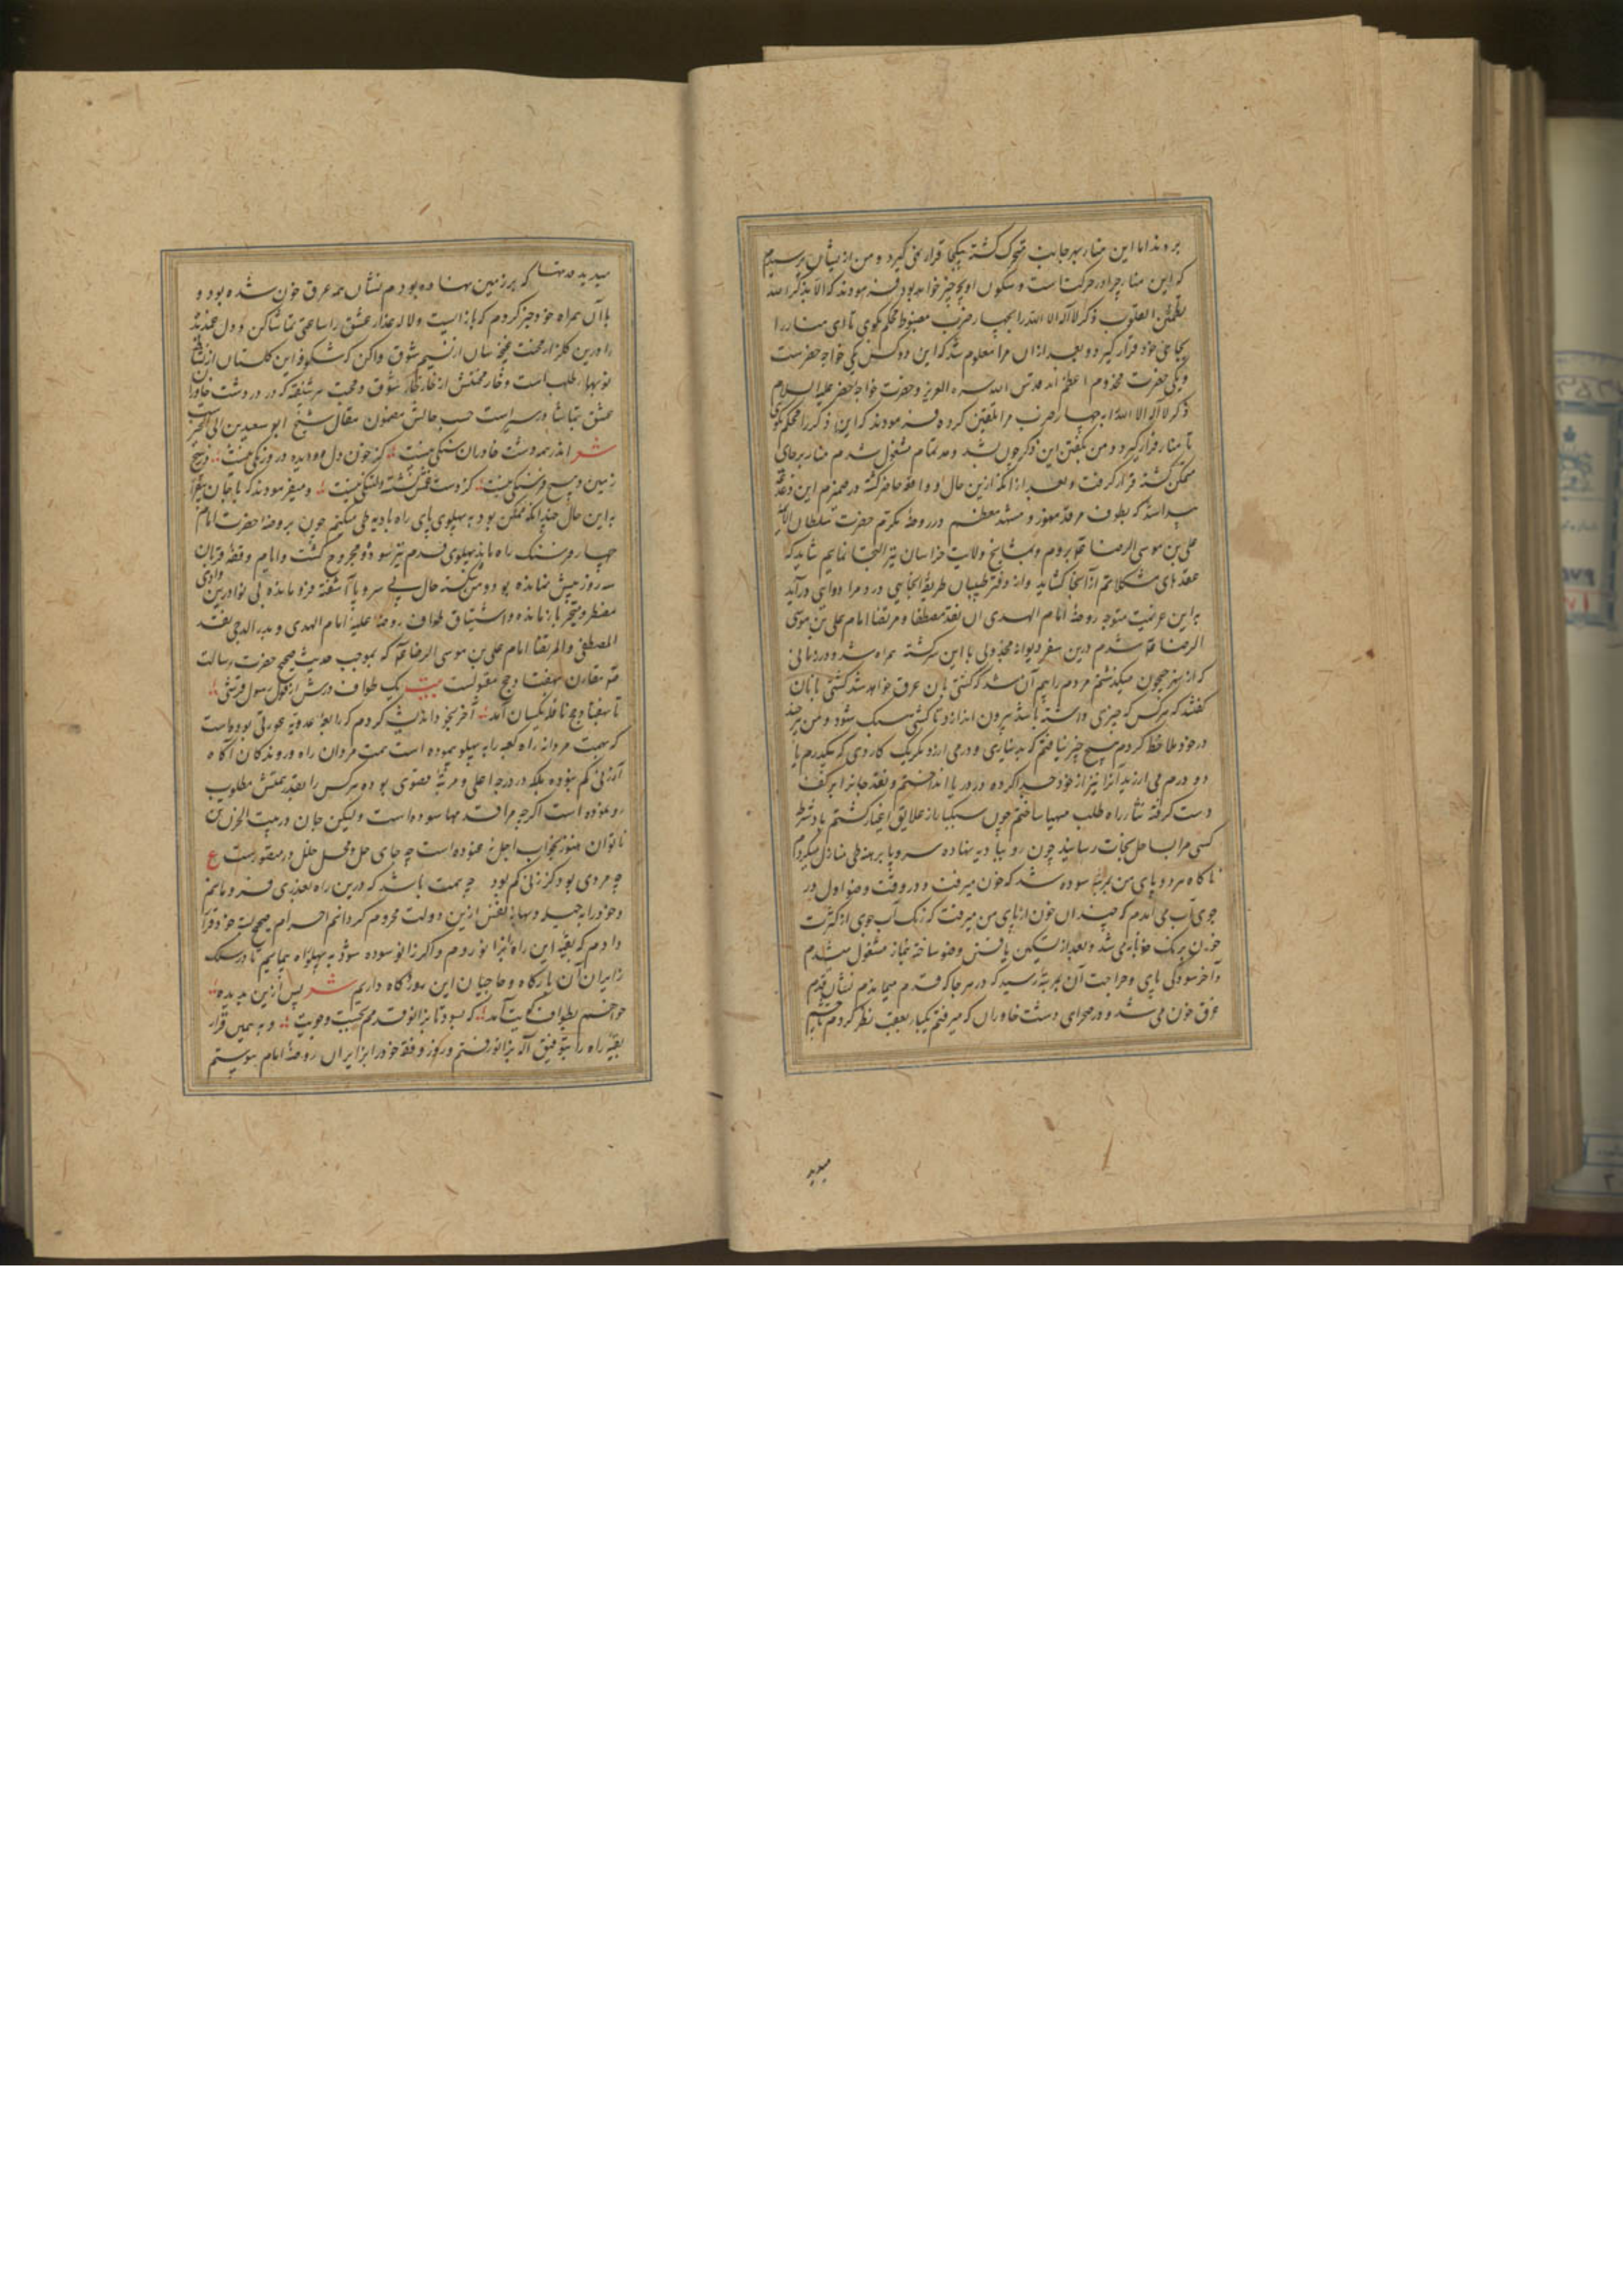 بروند اما این منار بهر جانب متحرک گشته بیکجا قرار نمی‌گیرد و من ازیشان پرسیدم
که این منار چرا در حرکت است و سکون او بچه چیز خواهد بود فرمودند که الا بذکر الله
تطمئن القلوب ذکر لا اله الا الله را بچهار ضرب مضبوط محکم بگوی تا این منار را
بجای خود قرار گیرد و بعد از ان مرا معلوم شد که این دو کس یکی خواجه خضرست
و یکی حضرت مخدوم اعظم اند قدس الله سره العزیز و حضرت خواجه خضر علیه السلام
ذکر لا اله الا الله را بچهار ضرب مرا تلقین کرده فرمودند که این ذکر را محکم بگوی
تا منار قرار گیرد و من بگفتن این ذکر چون بشد و مد تمام مشغول شدم منار بر جای
متمکن گشته قرار گرفت و بعد از انکه ازین حال و واقعه حاضر گشته در ضمیرم این دغدغه
پیدا شد که بطوف مرقد معزز و مشهد معظم در روضه مکرم حضرت سلطان
علی بن موسی الرضا بروم و بمشایخ ولایت خراسان نیز التجا نمایم شاید که
عقدهای مشکلاتم از آنجا گشاید و از دفتر طبیبان طریقه انجایی درد مرا دوایی درآید
به این عزیمت متوجه روضه امام الهدی ان نقد مصطفا و مرتضا امام علی بن موسی
الرضا شدم درین سفر دیوانه مجذوبی با این سرگشته همراه شد و در زمانی
که از نهر جیحون میگذشتم مردم را بیم آن شد که کشتی بان غرق خواهد شد کشتی بانان
گفتند که هر کس که چیزی داشته باشد بیرون اندازد تا کشتی سبک شود و من هر چند
در خود ملاحظه کردم هیچ چیز نیافتم که بدیناری و درمی ارزد مگر یک کاردی که بیکدرم یا
دو درم می ارزید آنرا نیز از خود جدا کرده در دریا انداختم و نقد جانرا بر کف
دست گرفته نثار راه طلب مهیا ساختم چون سبکبار از علایق اغیار گشتم باد شرطه
کسی مرا بساحل نجات رسانید چون رو ببادیه نهاده سر و پا برهنه طی منازل میکردم
ناگاه هر دو پای من بمرتبه سوده شد که خون میرفت و در وقت وضو اول در
جوی آب می آمدم که چندان خون از پای من میرفت که رنگ آب جوی از کثرت
خون برنگ خونابه می شد و بعد از تسکین یافتن وضو ساخته بنماز مشغول میشدم
و آخر سودگی پای و جراحت آن بمرتبه رسید که در هر جا که قدم میماندم نشان قدم
غرق خون می شد و در صحرای دشت خاوران که میرفتم یکبار بعقب نظر کردم
میدید
میدید قدمها که بر زمین نهاده بودم نشان همه غرق خون شده بود و
با آن همراه خود جهر کردم که بازایست و لاله عذار عشق را ساعتی تماشا کن و دل
را درین گلزار محنت غنچه سان از نسیم شوق واکن که شکوفه این گلستان از
نوبهار طلب است و خار محنتش از خارخار شوق و محبت سر شگفته که در دشت خاوران
عشق بتماشا درست است حسب حالش مضمون مقال شیخ ابو سعید بن ابی الخیر
شعر اندر همه دشت خاوران سنگی نیست کز خون دل و دیده درو رنگی نیست در هیچ
زمین و هیچ فرسنگی نیست کز دست غمش نشسته دلتنگی نیست و میفرمودند که با جان
به این حال چندانکه ممکن بود به پهلوی پای راه بادیه طی میکنم چون بروضه حضرت امام
چهار فرسنگ راه ماند پهلوی قدم نیز سوده و مجروح گشت و ایام وقفه قربان
سه روز پیش نمانده بود و من شکسته حال بی سر و پا آشفته فرو مانده بی نوا درین وادی
مضطر و متحیر بازمانده و اشتیاق طواف روضه علیه امام الهدی و بدر الدجی نقد
المصطفی و المرتضا امام علی بن موسی الرضا که بموجب حدیث صحیح حضرت رسالت
مقارن بهفتاد حج مقبولست بیت یک طواف درش از قول رسول قرشی
تا بهفتاد حج نافله یکسان آمد آخر بخود اندیشه کردم که رابعه عدویه عورتی بوده است
که بهمت مردانه راه کعبه را به پهلو پیموده است همت مردان راه و روندگان آگاه
از زنی کم نبوده بلکه در درجه اعلی و مرتبه قصوی بوده هر کس را بقدر همتش مطلوب
رو نموده است اگرچه مرا قدمها سوده است ولیکن جان در بیت الحزن تن
ناتوان هنوز بخواب اجل نغنوده است چه جای حل و محل خلل در مقصورست ع
چه مردی بود کز زنی کم بود چه همت باشد که درین راه بعذری فرو مانم
و خود را به حیله و بهانه نفس ازین دولت محروم گردانم احرام صحیح بسته خود قرار
دادم که بقیه این راه بزانو روم و اگر زانو سوده شود به پهلو راه بپیمایم تا در سلک
زایران آن بارگاه و حاجیان این روزگاه داریم شعر پس ازین بدیده
خواهم بطواف کویت آمد که بسود تا بزانو قدمم بجست و جویت و به همین قرار
بقیه راه را بتوفیق اله بزانو رفتم و روز وقفه خود را بزایران روضه امام پیوستم